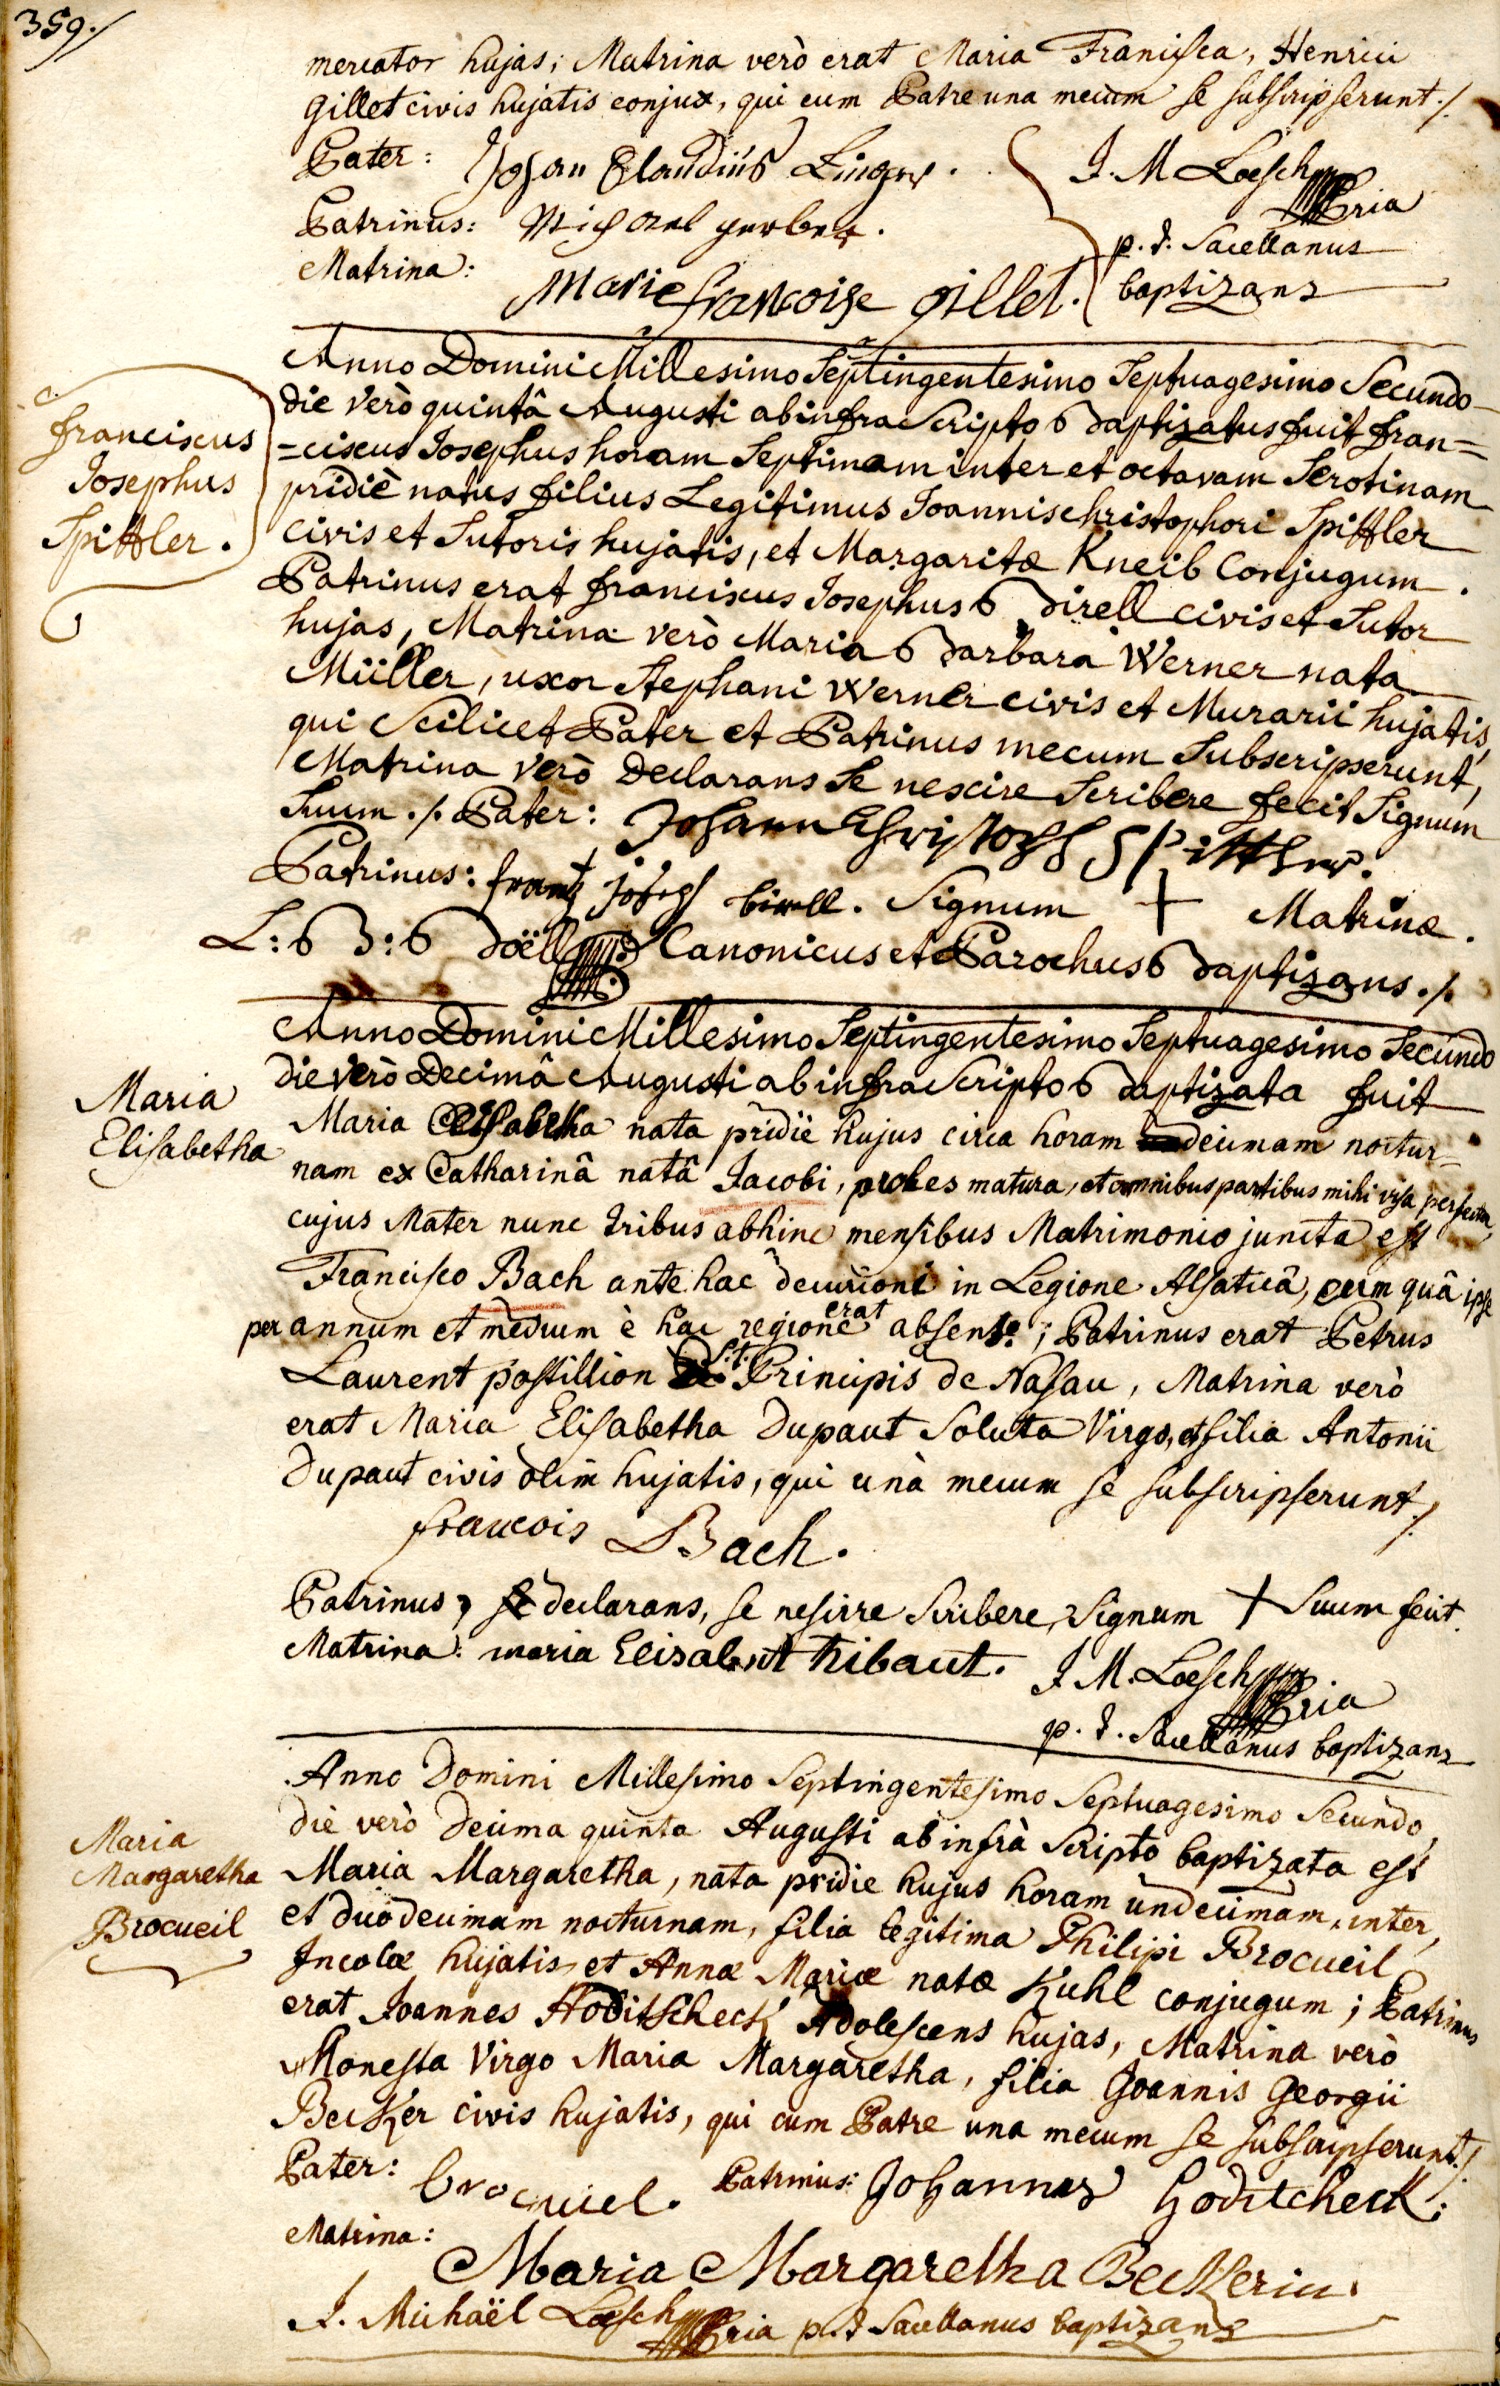 359./
mercator hujas; Matrina verò erat Maria Francisca, Henrici
Gillot civis hujatis conjux, qui cum Patre una mecum se subscripserunt./.
Pater: Johan Claudius
J. M Loesch
Patrinus: Michael gerber.
pria
Matrina: Marie francoise gillet.
p. t. Sacellanus
baptizans
Anno Domini Millesimo Septingentesimo Septuagesimo Secundo
die verò quintâ Augusti ab infra Scripto Baptizatus fuit Fran=
=ciscus Josephus horam Septimam inter et octavam Serotinam
pridiè natus filius Legitimus Joannis christophori Spittler
civis et Sutoris hujatis, et Margaritæ Kneib Conjugum.
Patrinus erat franciscus Josephus Birell civis et Sutor
hujas, Matrina verò Maria Barbara Werner nata
Müller, uxor Stephani Werner civis et Murarii hujatis,
qui Scilicet Pater et Patrinus mecum Subscripserunt,
Matrina verò Declarans Se nescire Scribere fecit Signum
Suum ./. Pater: Johann Christoph Spittler.
Patrinus: frantz joseph birell. Signum + Matrinæ.
L: B: Boëll Canonicus et Parochus Baptizans ./.
franciscus
Josephus
Spittler.
Anno Domini Millesimo Septingentesimo Septuagesimo Secundo
die verò Decimâ Augusti ab infra Scripto Baptizata fuit
Maria Elisabetha nata pridiè hujus circa horam decimam noctur=
nam ex Catharinâ natâ Jacobi, proles matura, et omnibus partibus mihi visa perfecta,
cujus Mater nunc tribus abhinc mensibus Matrimonio juncta est
Francisco Bach ante hac decurioni in Legione Alsaticâ, cum quâ ipse
per annum et medium è hac regione erat absens; Patrinus erat Petrus
Laurent postillion S.t. Principis de Nassau, Matrina verò
erat Maria Elisabetha Dupaut Soluta Virgo, et filia Antonii
Dupaut civis olim hujatis, qui unà mecum se subscripserunt./.
francois Bach.
Patrinus, declarans, se nescire Scribere, Signum + Suum fecit.
Matrina: maria Elisabeht thibaut.
J M. Loesch
pria
p. t. Sacellanus baptizans
Maria
Elisabetha
Anno Domini Millesimo Septingentesimo Septuagesimo Secundo,
die verò Decima quinta Augusti ab infrà Scripto baptizata est
Maria Margaretha, nata pridie hujus horam undecimam, inter,
et duodecimam nocturnam, filia legitima Philipi Brocueil
Incolæ hujatis, et Annæ Mariæ natæ Kuhl conjugum; Patrinus
erat Joannes Hoditscheck Adolescens hujas, Matrina verò
Honesta Virgo Maria Margaretha, filia Joannis Georgii
Becker civis hujatis, qui cum Patre una mecum se subscripserunt./.
Pater: brocuiel. Patrinus: Johannes Hoditcheck;
Matrina:
Maria Margaretha Beckerin.
J. Michaël Loesch pria p. t Sacellanus baptizans
Maria
Margaretha
Brocueil